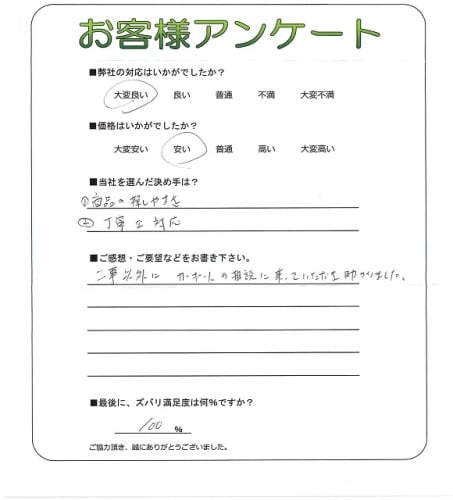 お客様アンケート
■弊社の対応はいかがでしたか？
大変良い 良い 普通 不満 大変不満
■価格はいかがでしたか？
大変安い 安い 普通 高い 大変高い
■当社を選んだ決め手は？
①商品の探しやすさ
② 丁寧な対応
■ご感想・ご要望などをお書き下さい。
工事以外に カーポートの相談に乗っていただき助かりました。
■最後に、ズバリ満足度は何%ですか？
100 %
ご協力頂き、誠にありがとうございました。